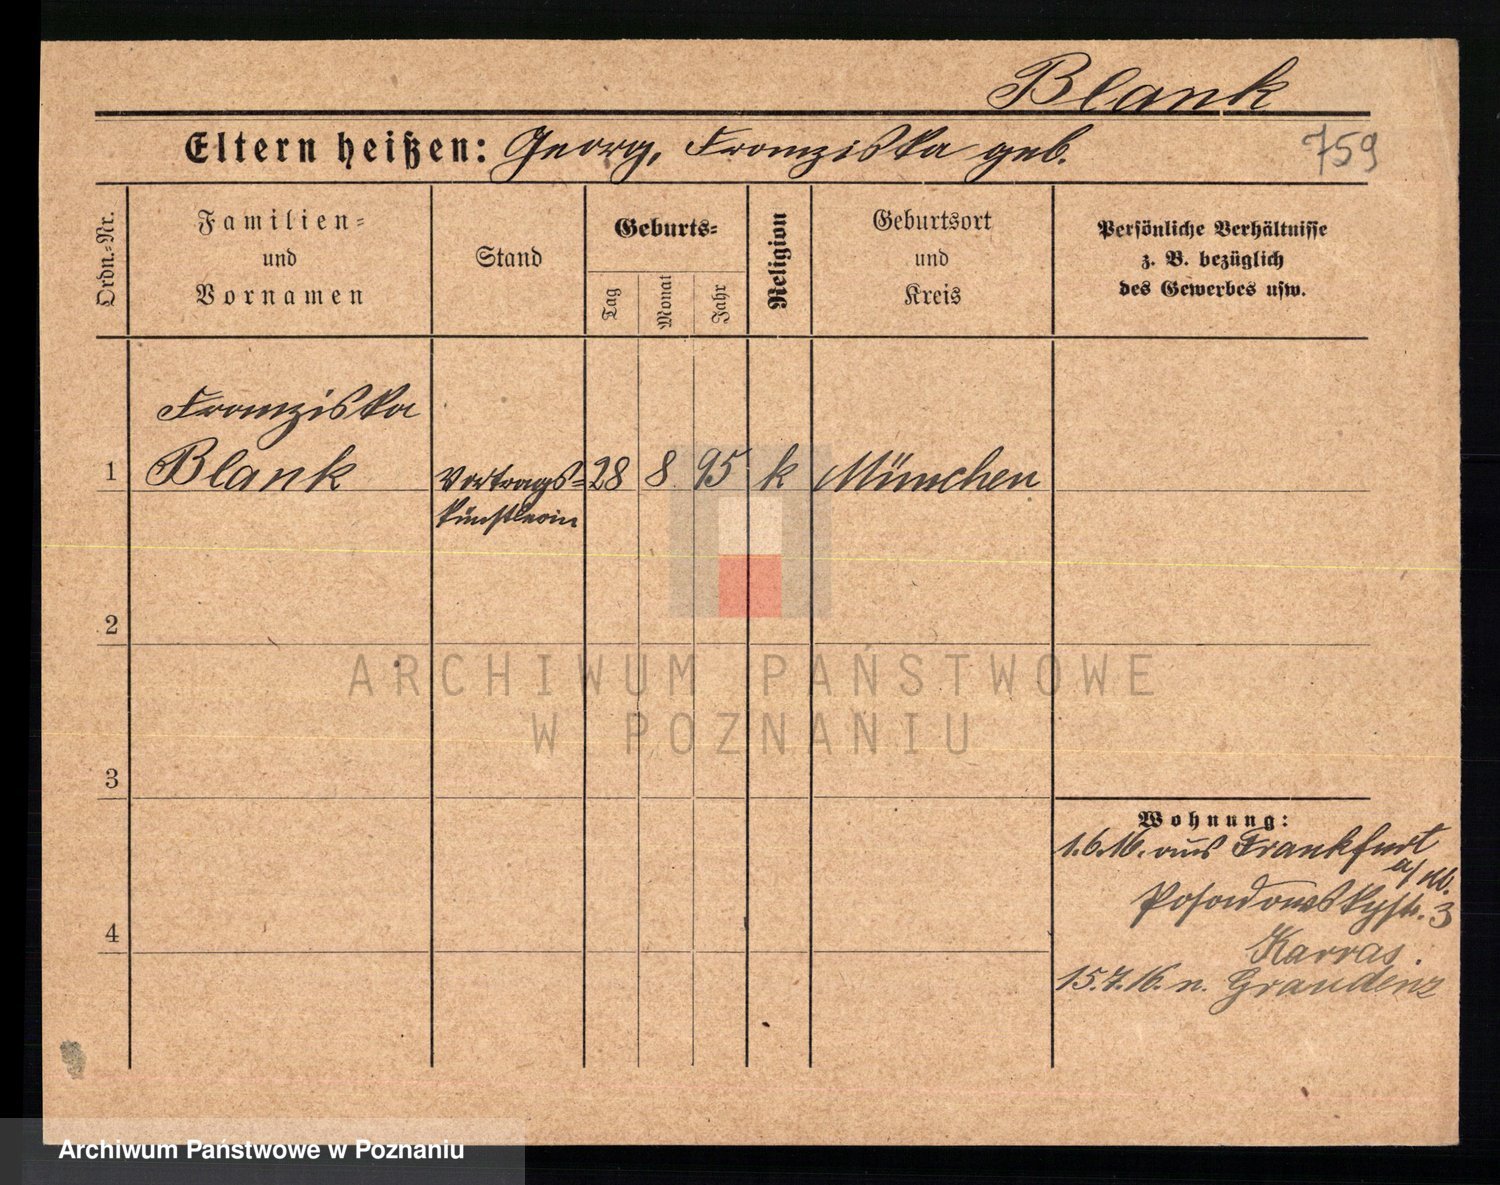 Blank
Eltern heißen: Georg, Franziska geb.
759
Ordn.-Nr.
Familien-
und
Vornamen
Stand
Geburts-
Tag
Monat
Jahr
Religion
Geburtsort
und
Kreis
Persönliche Verhältnisse
z. B. bezüglich
des Gewerbes usw.
Franziska
1 Blank Vortrags- 28 8 95 k München
künstlerin
2
ARCHIWUM PAŃSTWOWE
W POZNANIU
3
Wohnung:
1.6.16. aus Frankfurt
a/
Posadowskystr. 3
4
Karras.
15.7.16. n. Graudenz
Archiwum Państwowe w Poznaniu